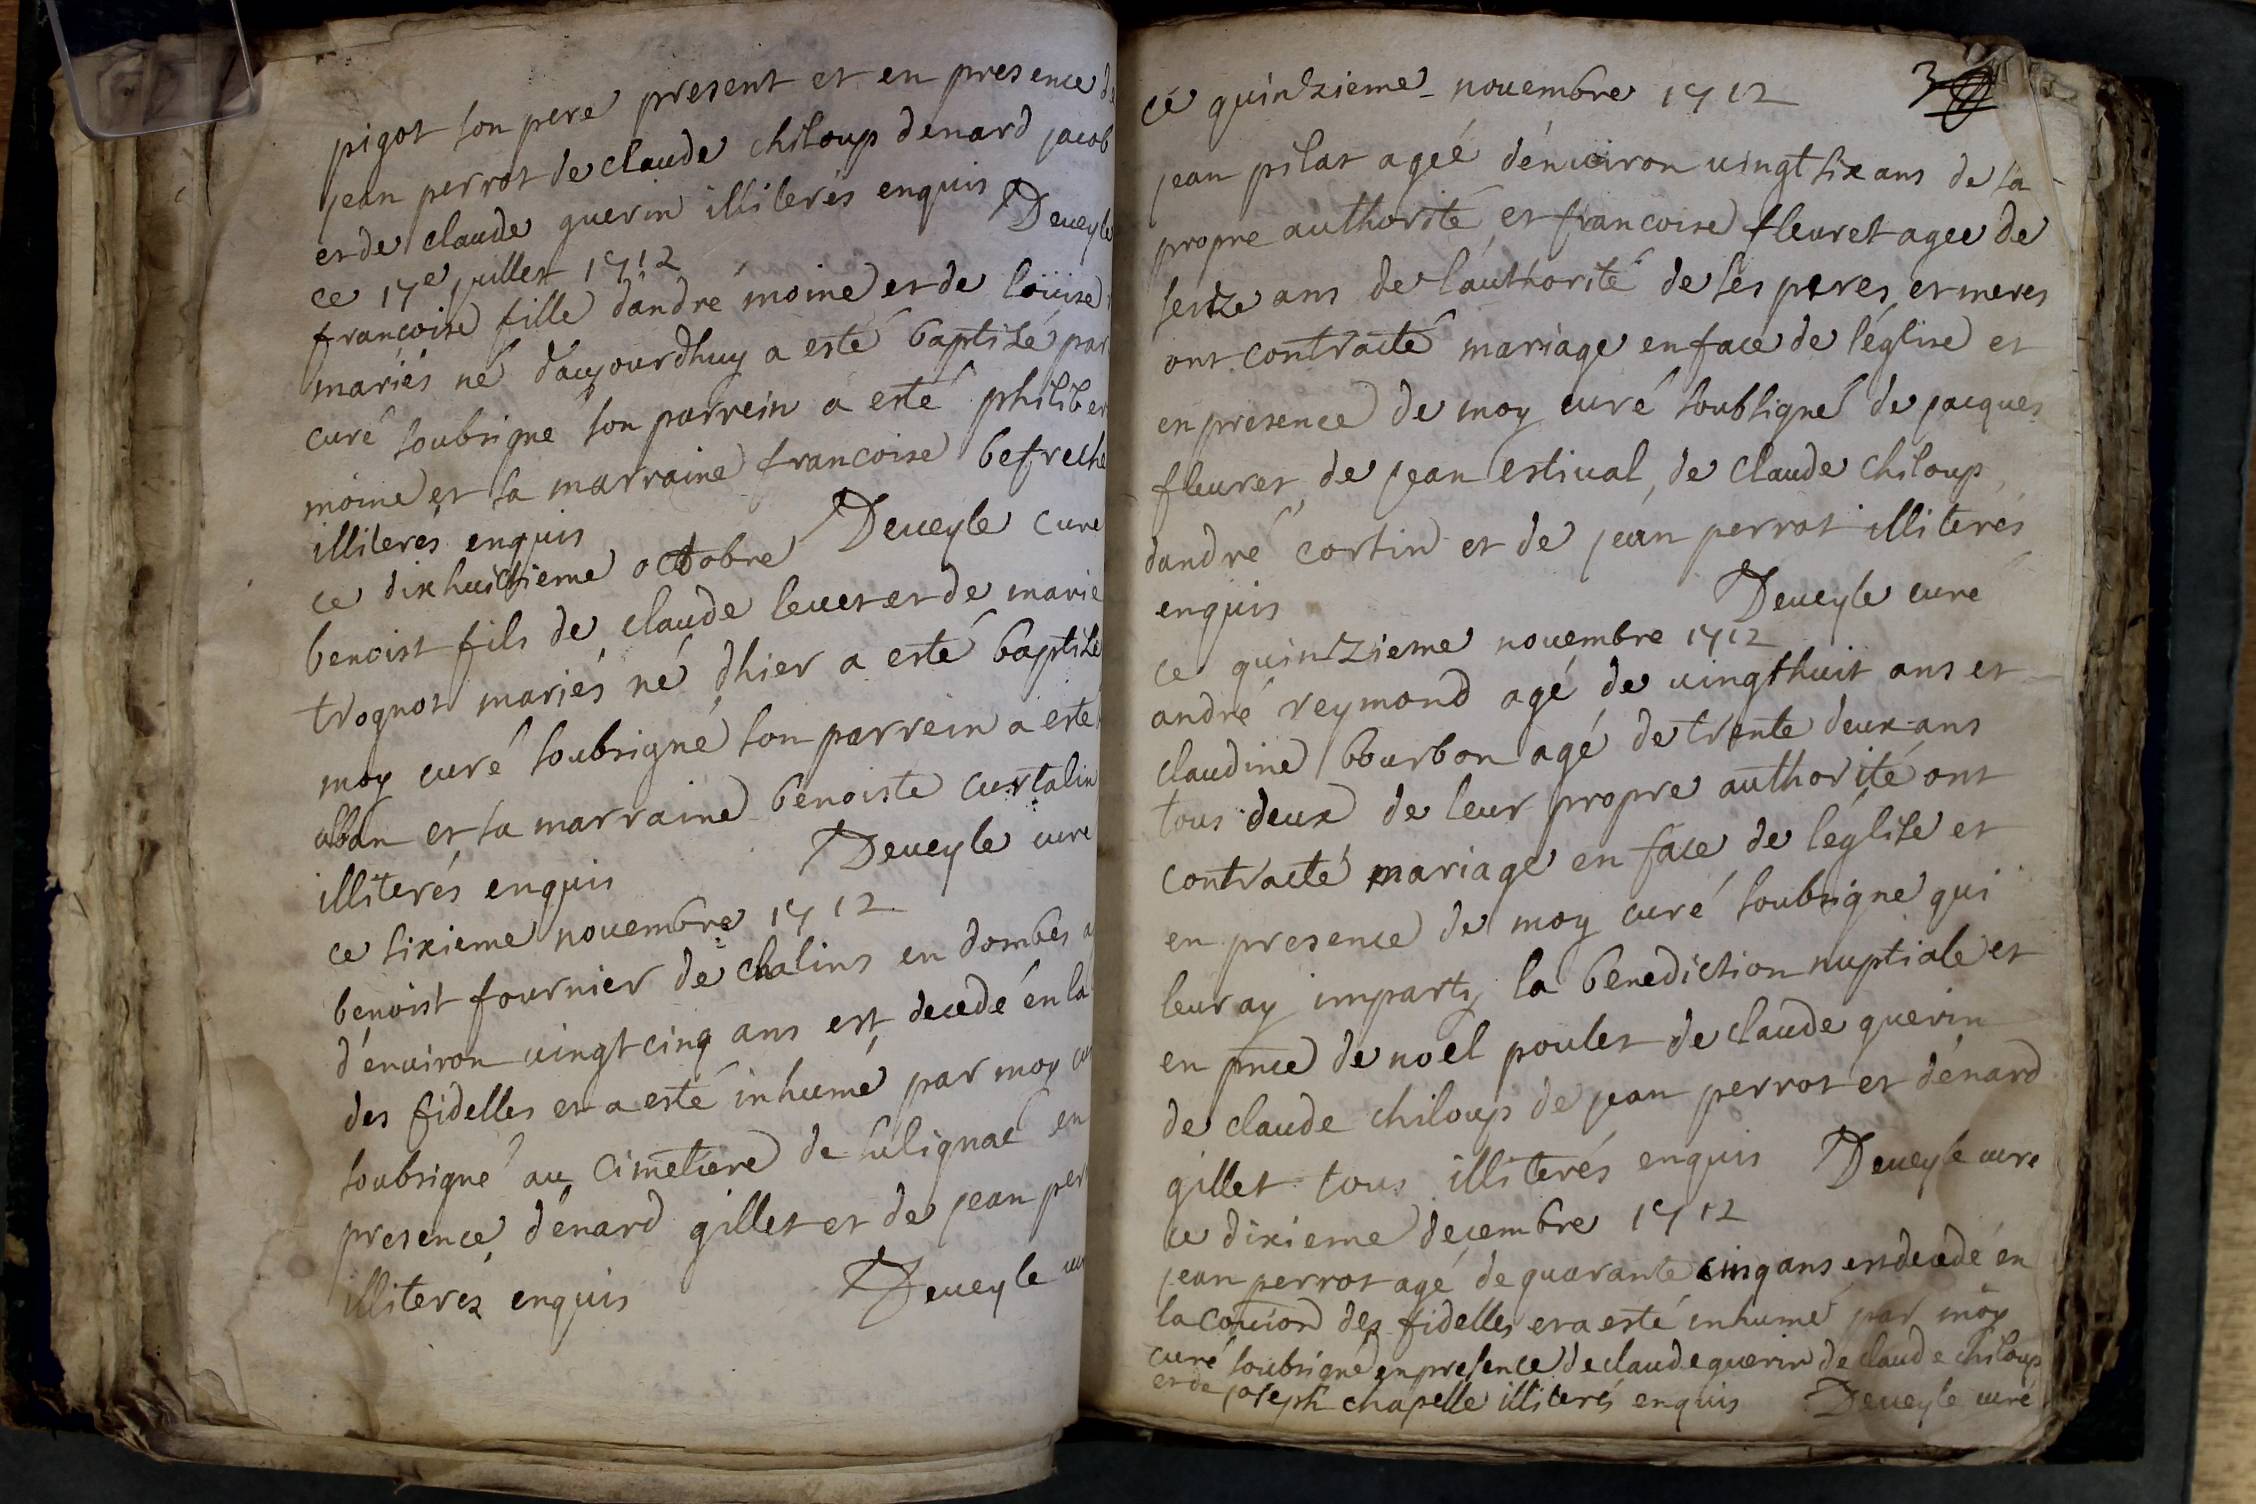 pigot son pere present et en presence de
jean perrot de claude chiloup denard jacob
et de claude guerin illiterés enquis Deveyle
ce 17e juillet 1712
francoise fille dandré moine et de loüise
mariés né daujourdhuy a esté baptisé par
curé soubsigné son parrein a esté philiber
moine et sa marraine francoise befreche
illiterés enquis Deveyle curé
ce dixhuictieme octobre
benoist fils de claude levet et de marie
trognot mariés né dhier a esté baptisé
moy curé soubsigné son parrein a esté
alban et sa marraine benoiste curtalin
illiterés enquis Deveyle curé
ce sixieme novembre 1712
benoist fournier de chalins en dombes a
d'environ vingt cinq ans est decedé en la
des fidelles et a esté inhumé par moy cu
soubsigné au cimetiere de sulignac en
presence dénard gillet et de jean per
illiterés enquis Deveyle cu
ce quinzieme novembre 1712
3
jean pilat ageé dénviron vingt six ans de sa
propre authorité et francoise fleuret agee de
seitze ans de lauthorité de ses peres et meres
ont contracté mariage en face de léglise et
en presence de moy curé soubsigné de jacques
fleuret, de jean estival, de claude chiloup,
dandré cortin et de jean perrot illiterés
enquis Deveyle curé
ce quinzieme novembre 1712
andré reymond agé de vingthuit ans et
claudine bourbon agé de trente deux ans
tous deux de leur propre authorité ont
contracté mariage en face de léglise et
en presence de moy curé soubsigné qui
leur ay imparty la benediction nuptiale et
en pnce de noel poulet de claude guerin
de claude chiloup de jean perrot et dénard
gillet tous illiterés enquis Deveyle curé
ce dixieme decembre 1712
jean perrot agé de quarante cinq ans est decedé en
la comion des fidelles et a esté inhumé par moy
curé soubsigné en presence de claude guerin de claude chiloup
et de joseph chapelle illiterés enquis Deveyle curé